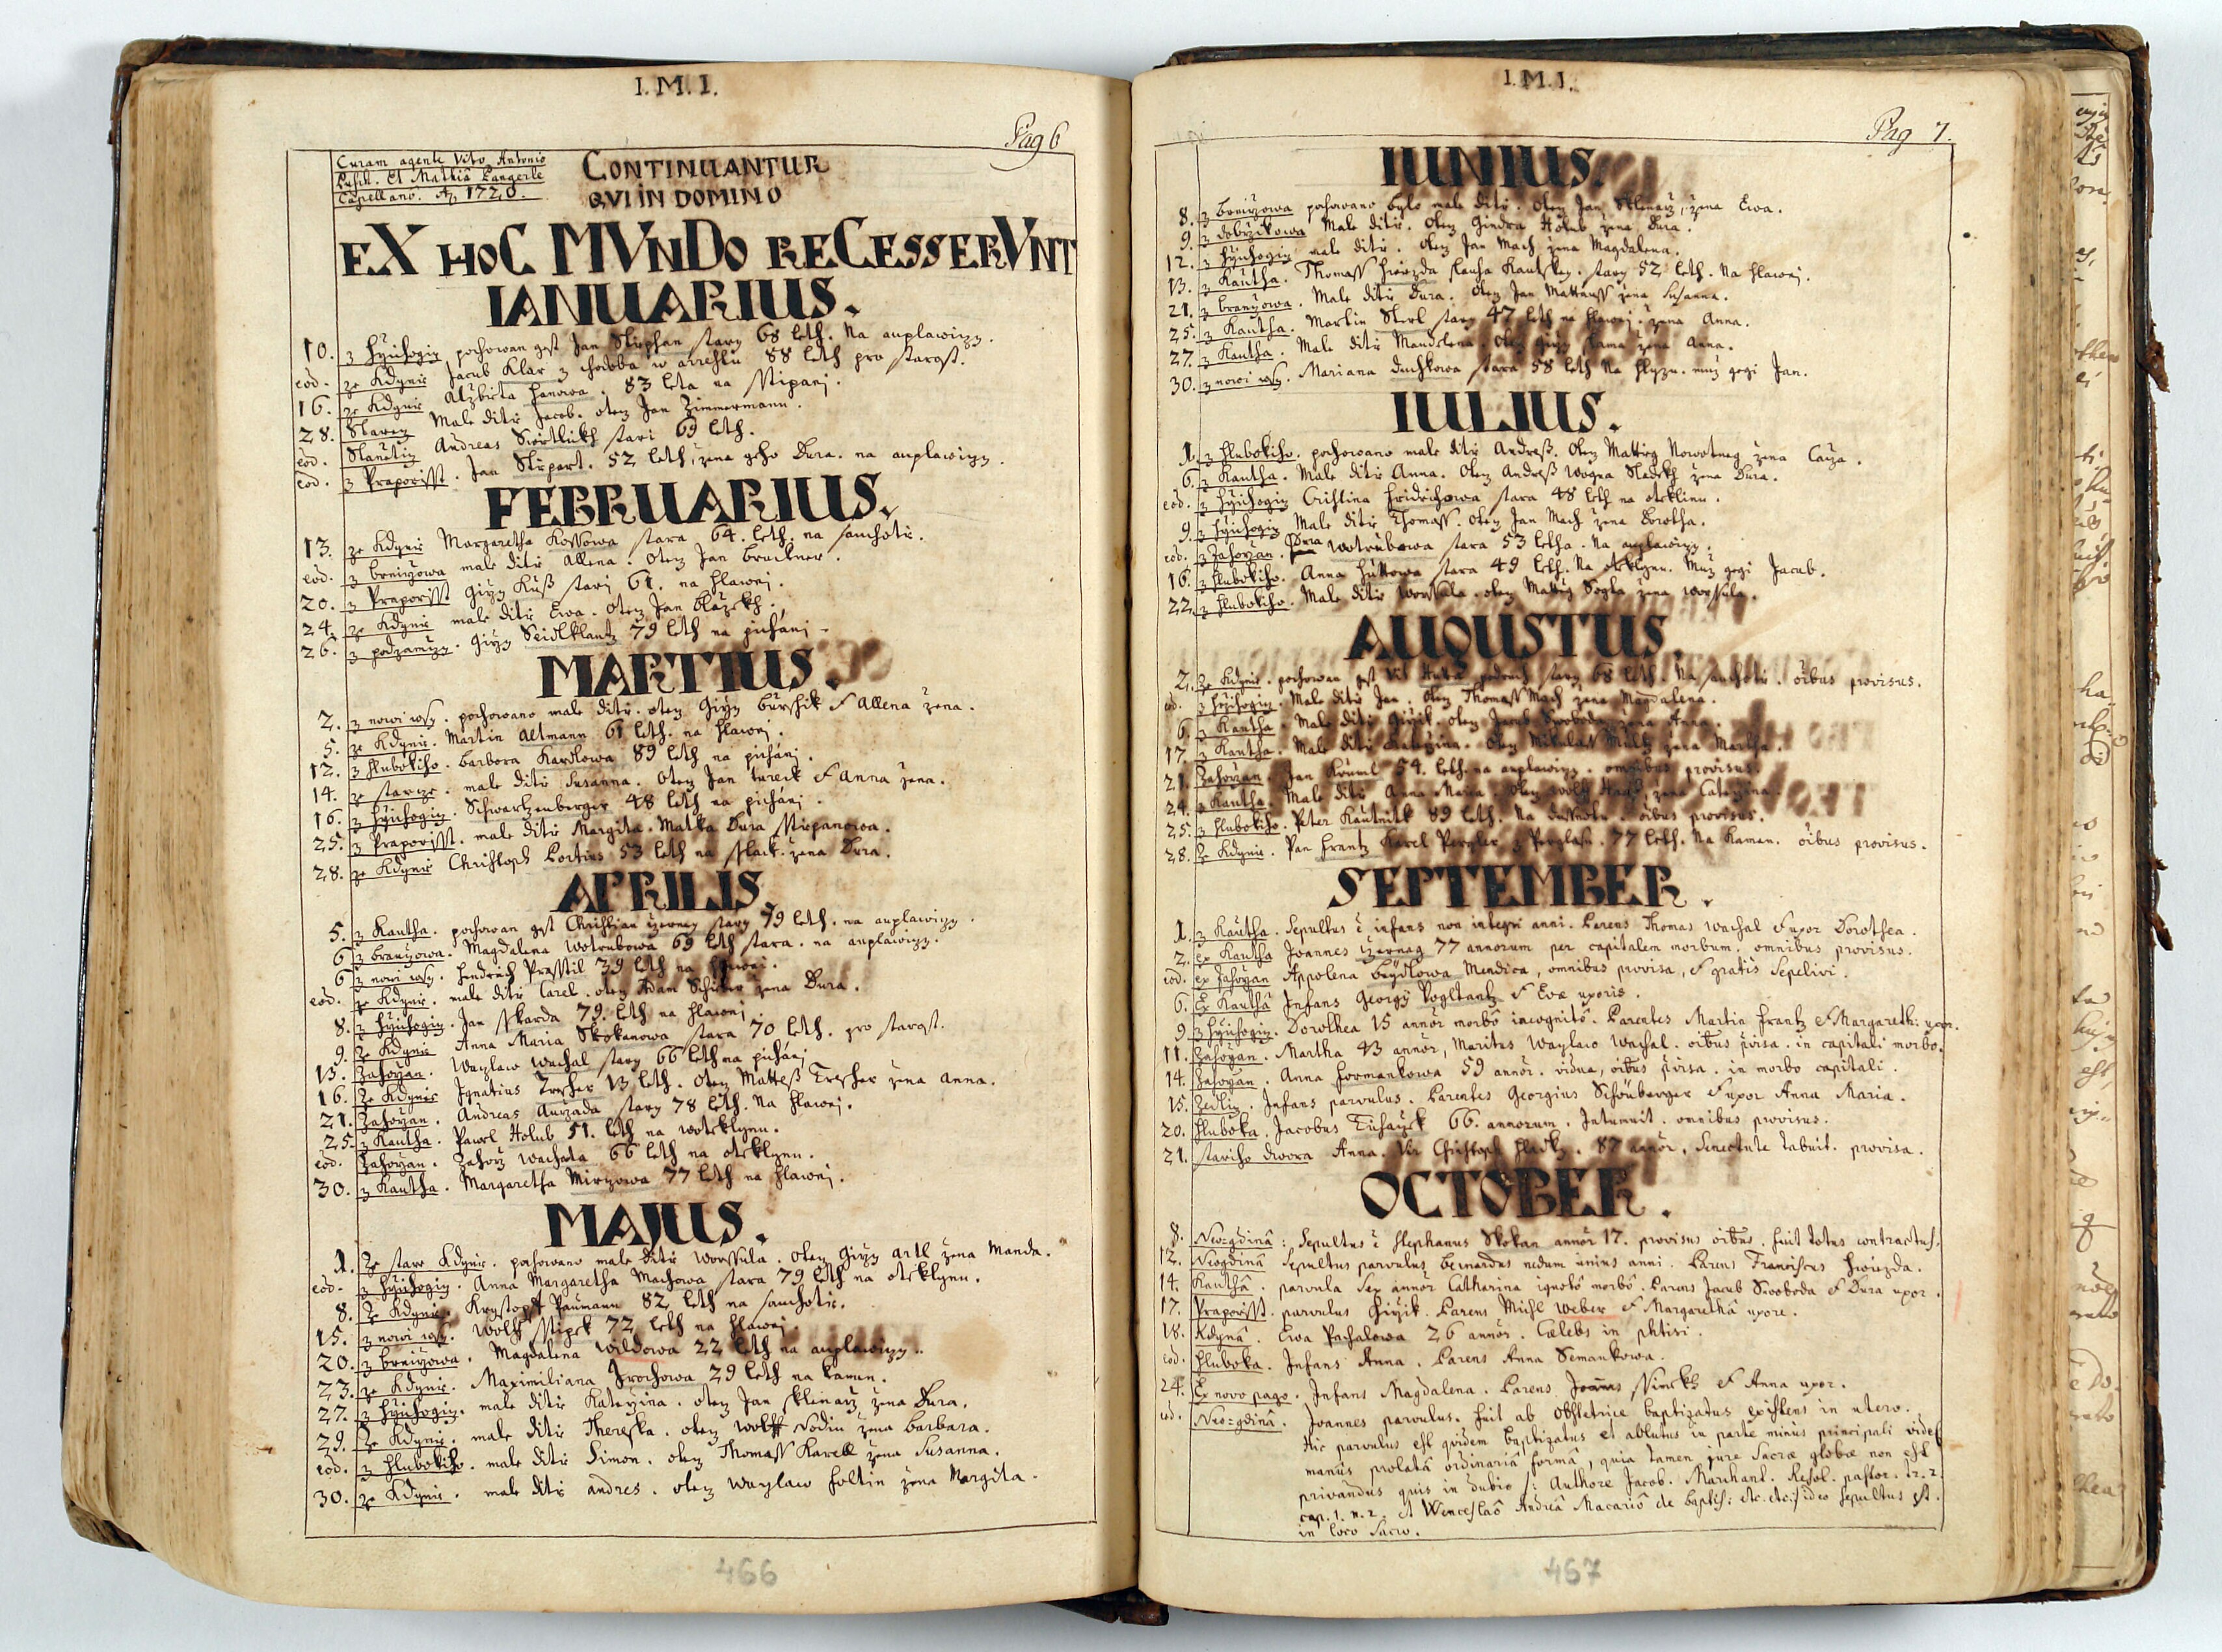 I.M.I.
Pag 6
Curam agente Vito Antonio
Et Mathia Langerle
Capellano. Ao 1720.
CONTINUANTUR
QVI IN DOMINO
EX HOC MVNDO RECESSERVNT
IANUARIUS.
10. z pochowan gest Jan Stiephan stary 68 leth. Na auplawiczy.
eod. ze Kdynie Jacub Klar z 88 leth pro starost.
16. ze Kdynie Alzbieta Hanowa. 83 leta na Stipani.
28. Starey Male ditie Jacob. otecz Jan Zimmermann.
eod. Slanetin Andreas stari 69 leth.
eod. z Praporisst. Jan 52 leth, zena geho Dura. na auplawiczy.
FEBRUARIUS.
13. ze Kdynie Margaretha Kossowa stara 64. leth. na sauchotie.
eod. z brniczowa male ditie Allena. otecz Jan bruckner.
20. z Praporisst Girzy Kuß stari 61. na hlawni.
24. ze Kdynie male ditie Ewa. otecz Jan blazekh.
26. z podzamczy. Girzy Seidlklantz 79 leth na pichani.
MARTIUS.
2. z nowi wsy. pochowano male ditie. otecz Girzy burschik & Allena zena.
5. ze Kdynie. Martin Altmann 61 leth. na hlawni.
12. z hlubokiho. barbora Karllowa 89 leth na pichani.
14. ze starcze. male ditie Susanna. otecz Jan tureck & Anna zena.
16. z Schwartzenberger 48 leth na pichani.
25. z Praporisst. male ditie Margita. Matka Dura Stiepanowa.
28. ze Kdynie Christoph Portius 53 leth na zena Dura.
APRILIS.
5. z Kautha. pochowan gest Christian czerney stary 79 leth. na auplawiczy.
6 z braniczowa. Magdalena Wotrubowa 69 leth stara. na auplawiczy.
6 z nowi wsy. hendrich Prasstil 39 leth na hlawni.
eod. ze Kdynie. male ditie Carel. otecz Adam zena Dura.
8. z Jan Skarda 79. leth na hlawni
9. Ze Kdynie Anna Maria Skokanowa stara 70 leth. pro starost.
15. Zahorzan. Waczlaw Wachal stary 66 leth na pichani
16. Ze Kdynie Ignatius Trescher 13 leth. otecz Matteß Trescher zena Anna.
21. Zahorzan. Andreas Auczada stary 78 leth. Na hlawni.
25. z Kautha. Pawel Holub 51. leth na woteklynu.
eod. Zahorzan. Wachala 66 leth na oteklynu.
30. z Kautha. Margaretha Mirzowa 77 leth na hlawni.
MAJUS.
1. Ze stare Kdynie. pochowano male ditie Worssula. otecz Girzy Artl zena Manda.
eod. z Anna Margaretha Machowa stara 79 leth na oteklynu.
8. Ze Kdynie. Krystoph Paumann 82 leth na sauchotie.
15. z nowi wsy. Wolff Stipek 72 leth na hlawni
20. z brniczowa. Magdalena Wildowa 22 leth na auplawiczy.
23. ze Kdynie. Maximiliana 29 leth na kamen.
27. z male ditie Katerzina. otecz Jan Sklenarz zena Dura.
29. Ze Kdynie. male ditie Thereska. otecz Wolff Nodin zena barbara.
eod. z hlubokiho. male ditie Simon. otecz Thomass Karell zena Susanna.
30. ze Kdynie. male ditie andres. otecz Waczlaw holtin zena Margita.
466
I.M.I.
Pag 7.
IUNIUS.
8. z brniczowa pochowano bylo male ditie. otecz Jan Sklenarz, zena Ewa.
9. z dobrzikowa Male ditie. otecz Gindra Holub zena Dura.
12. z male ditie. otecz Jan Mach zena Magdalena.
13. z Kautha. Thomass stary 52 leth. Na hlawni.
21. z branczowa. Male ditie Dura. otecz Jan Mattauss zena Susanna.
25. z Kautha. Martin Sterl stary 47 leth na hlawni. zena Anna.
27. z Kautha. Male ditie Mandelena. otecz Girzy zena Anna.
30. z nowi wsy. Mariana Duchkowa stara 58 leth Na muz gegi Jan.
IULIUS.
1. z hlubokiho. pochowano male ditie Andreß. otecz Mattieg Nowotneg zena
6. z Kautha. Male ditie Anna. otecz Andreß Wogna Sladekh zena Dura.
eod. z Cristina Fridrichowa stara 48 leth na oteklinu.
9. z Male ditie Thomass. otecz Jan Mach zena Dorotha.
eod. z Zahorzan. Dura Wotrubowa stara 53 letha. Na auplawiczy.
16. z hlubokiho. Anna Huttowa stara 49 leth. Na oteklynu. Muz gegi Jacub.
22. z hlubokiho. Male ditie Worssula. otecz Mattieg Sogka zena Worssula.
AUGUSTUS.
2. Ze Kdynie. pochowan gest Vit stary 68 leth. Na sauchotie. oibus provisus.
eod. z Male ditie Jan. otecz Thomass Mach zena Magdalena.
6. z Kautha. Male ditie Girzik. otecz Jacub Swoboda zena Anna.
17. z Kautha. Male ditie Katerzina. otecz Mikulass zena Martha.
21. Zahorzan. Jan 54. leth. na auplawiczy. omnibus provisus.
24. z Kautha. Male ditie Anna Maria. otecz Wolff zena Caterzina.
25. z hlubokiho. Peter Kautnik 89 leth. Na oibus provisus.
28. Ze Kdynie. Pan Frantz Karel Pergler z Perglasu. 77 leth. Na Kaman. oibus provisus.
SEPTEMBER.
1. z Kautha. Sepultus e infans non integri anni. Parens Thomas Wachal & uxor Dorothea.
2. ex Kautha Joannes czernag 77 annorum per capitalem morbum. omnibus provisus.
eod. ex Zahorzan Appolena beydlowa Mendica, omnibus provisa, & gratis sepelivi.
6. Ex Kautha Infans Georgy Voglkantz & Evæ uxoris.
9. z Dorothea 15 annor morbo incognito. Parentes Martin Frantz & Margareth: uxor.
11. Zahorzan. Martha 43 annor, Maritus Waczlaw Wachal. oibus pvisa. in capitali morbo.
14. Zahorzan. Anna Formankowa 59 annor. vidua, oibus pvisa. in morbo capitali.
15. Zedliz. Infans parvulus. Parentes Georgius Schönberger & uxor Anna Maria.
20. Hluboka. Jacobus 66. annorum. Intumuit. omnibus provisus.
21. stariho dwora Anna. Vir Christoph hladky. 87 annor. Senectute tabuit. provisa.
OCTOBER.
8. Neo-gdina: Sepultus e Stephanus Skokan annor 17. provisus oibus. fuit totus contractus.
12. Neogdina Sepultus parvulus bernardus nedum unius anni. Parens Franciscus
14. Kautha. parvula sex annor Catharina ignoto morbo. Parens Jacub Swoboda & Dura uxor.
17. Praporisst. parvulus Parens Michl Weber & Margaretha uxore.
18. Kdyna. Ewa Pachalowa 26 annor. Cælebs in phtisi.
eod. hluboka. Infans Anna. Parens Anna Semankowa.
24. Ex novo pago. Infans Magdalena. Parens Joannes & Anna uxor.
eod. Neo-gdina. Joannes parvulus. fuit ab Obstetrice baptizatus existens in utero.
Hic parvulus est quidem baptizatus et ablutus in parte minus principali videl
manus prolata ordinaria forma, quia tamen jure Sacræ glebæ non est
privandus quis in dubio /: Authore Jacob. Marchant. Resol. pastor. tr. 2.
cap. 1. n. 2. et Wenceslao Andrea Macario de baptis: etc. etc:/ ideo sepultus est.
in loco Sacro.
467